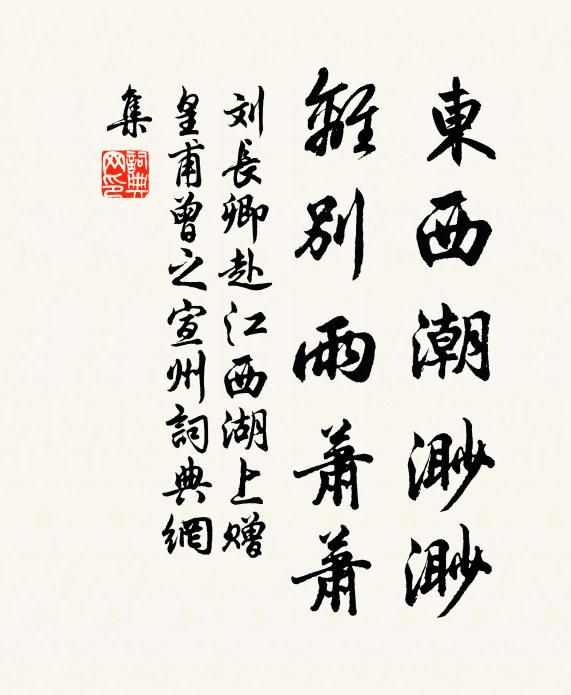 東西潮渺渺
離別雨蕭蕭
刘長卿赴江西湖上赠
皇甫曾之宣州詞典網
集
詞典
网印